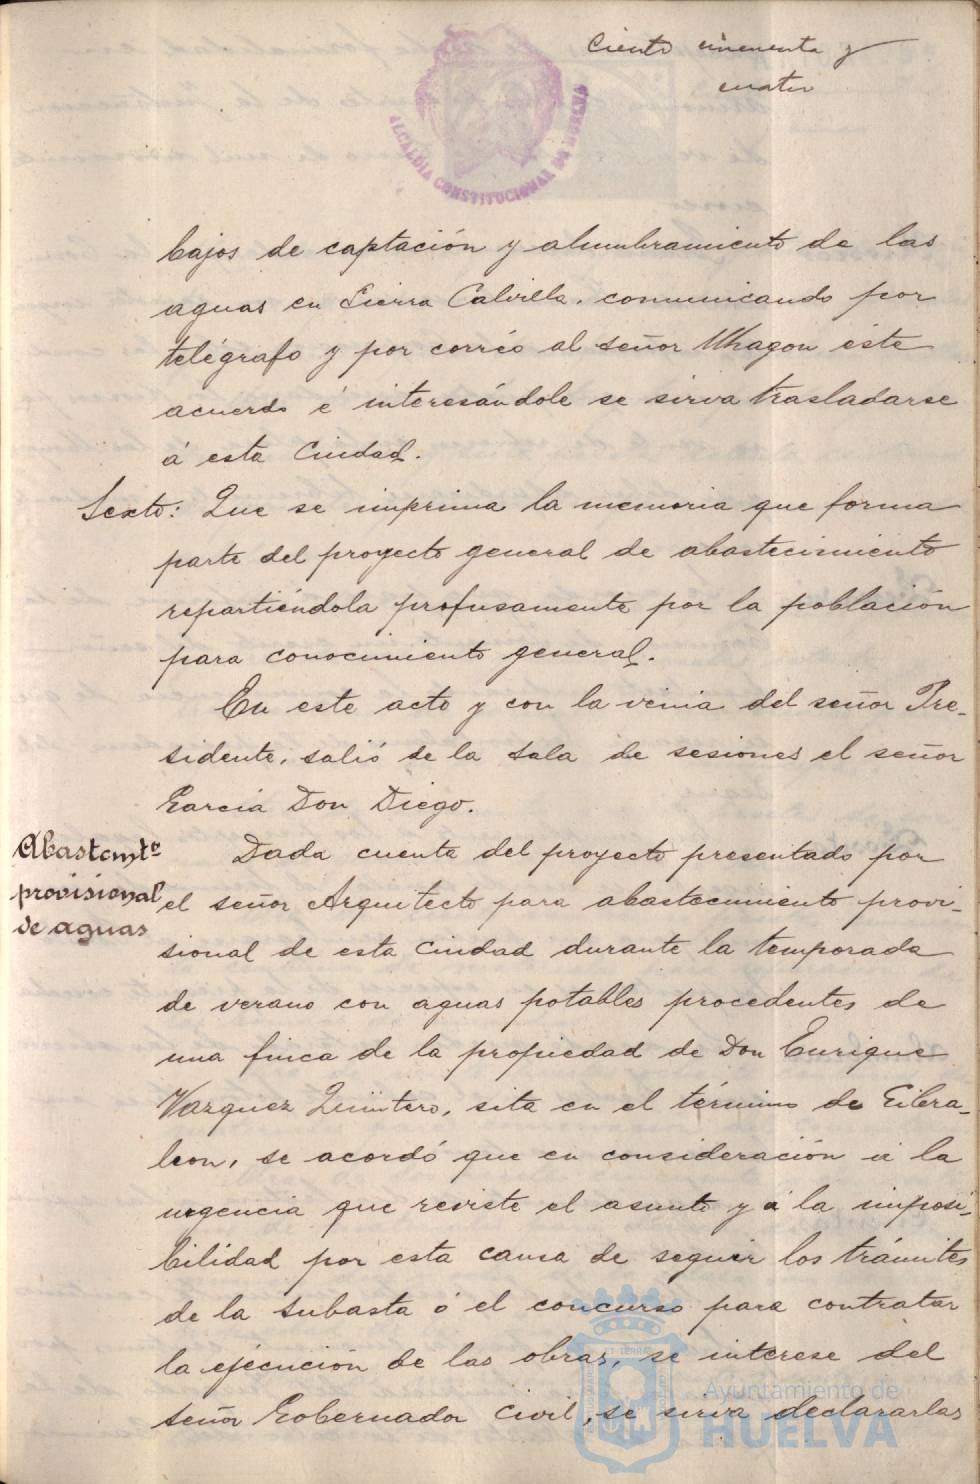 Ciento cincuenta y
cuatro
ALCALDIA CONSTITUCIONAL DE HUELVA
bajos de captación y alumbramiento de las
aguas en Sierra Calvilla, comunicando por
telégrafo y por corréo al señor Uhagon éste
acuerdo é interesándole se sirva trasladarse
á esta Ciudad.
Sexto: Que se imprima la memoria que forma
parte del proyecto general de abastecimiento
repartiéndola profusamente por la población
para conocimiento general.
En este acto y con la venia del señor Pre-
sidente, salió de la Sala de sesiones el señor
Garcia Don Diego.
Abastcmto
provisional
de aguas
Dada cuenta del proyecto presentado por
el señor Arquitecto para abastecimiento provi-
sional de esta Ciudad durante la temporada
de verano con aguas potables procedentes de
una finca de la propiedad de Don Enrique
Vazquez Quintero, sita en el término de Gibra-
leon, se acordó que en consideración á la
urgencia que reviste el asunto y á la imposi-
bilidad por esta causa de seguir los trámites
de la subasta ó el concurso para contratar
la ejecución de las obras, se interese del
señor Gobernador Civil, se sirva declararlas
Ayuntamiento de
HUELVA